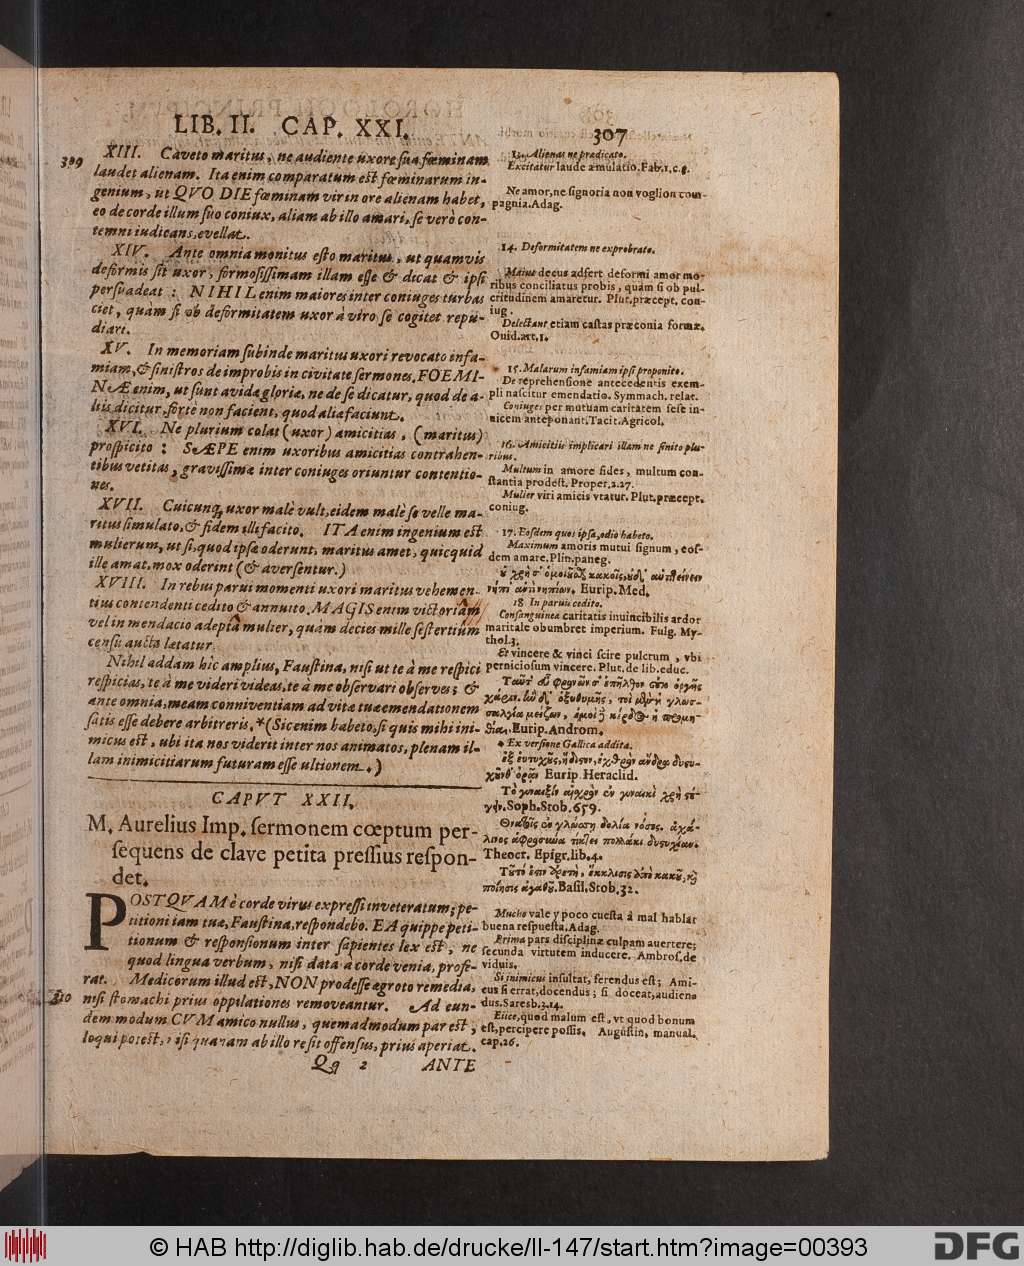 LIB. II. CAP. XXI.
307
309
XIII. Caveto maritus, ne audiente uxore sua fœminam
laudet alienam. Ita enim comparatum est fœminarum in-
genium, ut QVO DIE fœminam vir in ore alienam habet,
eo de corde illum suo coniux, aliam ab illo amari, se verò con-
temni iudicans, evellat.
XIV. Ante omnia monitus esto maritus, ut quamvis
deformis sit uxor, formosissimam illam esse & dicat & ipsi
persuadeat: NIHIL enim maiores inter coniuges turbas
ciet, quàm si ob deformitatem uxor à viro se cogitet repu-
diari.
XV. In memoriam subinde maritus uxori revocato infa-
miam, & sinistros de improbis in civitate sermones. FOEMI-
NÆ enim, ut sunt avidæ gloriæ, ne de se dicatur, quod de a-
liis dicitur, forte non facient, quod alia faciunt.
XVI. Ne plurium colat (uxor) amicitias, (maritus)
prospicito: SÆPE enim uxoribus amicitias contrahen-
tibus vetitas, gravissimæ inter coniuges oriuntur contentio-
nes.
XVII. Cuicunq; uxor malè vult, eidem malè se velle ma-
ritus simulato, & fidem illi facito. ITA enim ingenium est
mulierum, ut si, quod ipsæ oderunt, maritus amet, quicquid
ille amat, mox oderint (& aversentur.)
XVIII. In rebus parui momenti uxori maritus vehemen-
tius contendenti cedito & annuito. MAGIS enim victoriâm
vel in mendacio adeptâ mulier, quàm decies mille sestertiûm
censu aucta lætatur.
Nihil addam hîc amplius, Faustina, nisi ut te à me respici
respicias, te à me videri videas, te à me observari observes; &
ante omnia, meam conniventiam ad vitæ tuæ emendationem
satis esse debere arbitreris.*(Sic enim habeto, si quis mihi ini-
micus est, ubi ita nos viderit inter nos animatos, plenam il-
lam inimicitiarum futuram esse ultionem.)
CAPVT XXII.
M. Aurelius Imp. sermonem cœptum per-
sequens de clave petita pressius respon-
det.
POSTQVAM è corde virus expressi inveteratum; pe-
titioni iam tuæ, Faustina, respondebo. EA quippe peti-
tionum & responsionum inter sapientes lex est, ne
quod lingua verbum, nisi data à corde venia, profe-
rat. Medicorum illud est, NON prodesse ægroto remedia,
310
nisi stomachi prius oppilationes removeantur. Ad eun-
dem modum CVM amico nullus, quemadmodum par est,
loqui potest, nisi quanam ab illo re sit offensus, prius aperiat.
Qq 2 ANTE
13. Alienas ne prædicato.
Excitatur laude æmulatio. Fab. 1, c. 9.
Ne amor, ne signoria non voglion com-
pagnia. Adag.
14. Deformitatem ne exprobrato.
Maius decus adfert deformi amor mo-
ribus conciliatus probis, quàm si ob pul-
critudinem amaretur. Plut. præcept. con-
iug.
Delectant etiam castas præconia formæ.
Ouid. art. 1.
15. Malarum infamiam ipsi proponito.
De reprehensione antecedentis exem-
pli nascitur emendatio. Symmach. relat.
Coniuges per mutuam caritatem sese in-
uicem anteponant. Tacit. Agricol.
16. Amicitiis implicari illam ne sinito plu-
ribus.
Multum in amore fides, multum con-
stantia prodest. Proper. 2. 27.
Mulier viri amicis vtatur. Plut. præcept.
coniug.
17. Eosdem quos ipsa, odio habeto.
Maximum amoris mutui signum, eos-
dem amare. Plin. paneg.
Eurip. Med.
18 In paruis cedito.
Consanguinea caritatis inuincibilis ardor
maritale obumbret imperium. Fulg. My-
thol. 3.
Et vincere & vinci scire pulcrum, vbi
perniciosum vincere. Plut. de lib. educ.
Eurip. Androm.
* Ex versione Gallica addita.
Eurip. Heraclid.
Soph. Stob. 659.
Theocr. Epigr. lib. 4.
Basil. Stob. 32.
Mucho vale y poco cuesta à mal hablar
buena respuesta. Adag.
Prima pars disciplinæ culpam auertere;
secunda virtutem inducere. Ambros. de
viduis.
Si inimicus insultat, ferendus est; Ami-
cus si errat, docendus; si doceat, audien-
dus. Saresb. 3. 14.
Eiice, quod malum est, vt quod bonum
est, percipere possis. Augustin. manual.
cap. 26.
© HAB http://diglib.hab.de/drucke/ll-147/start.htm?image=00393
DFG